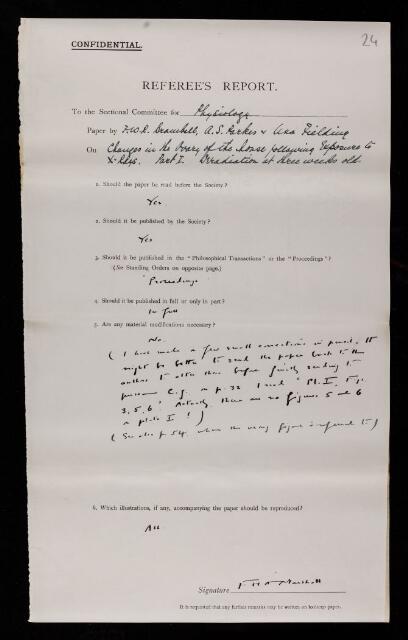 24
CONFIDENTIAL.
REFEREE'S REPORT.
To the Sectional Committee for Physiology
Paper by F.W.R. Brambell, A.S. Parkes & Una Fielding
On Changes in the Ovary of the Mouse following Exposure to
X-Rays. Part I. Irradiation at three weeks old.
1. Should the paper be read before the Society?
Yes
2. Should it be published by the Society?
Yes
3. Should it be published in the "Philosophical Transactions" or the "Proceedings"?
(See Standing Orders on opposite page.)
Proceedings
4. Should it be published in full or only in part?
In full
5. Are any material modifications necessary?
No.
( I have made a few small corrections in pencil. It
might be better to send the paper back to the
author to alter these before finally sending to
e.g. on p. 32 I read " Pl. I, Figs.
3, 5, 6 " Actually there are no figures 5 and 6
on plate I ! )
( See also p 54 where the wrong figure is referred to )
6. Which illustrations, if any, accompanying the paper should be reproduced?
All
Signature F H A Marshall
It is requested that any further remarks may be written on